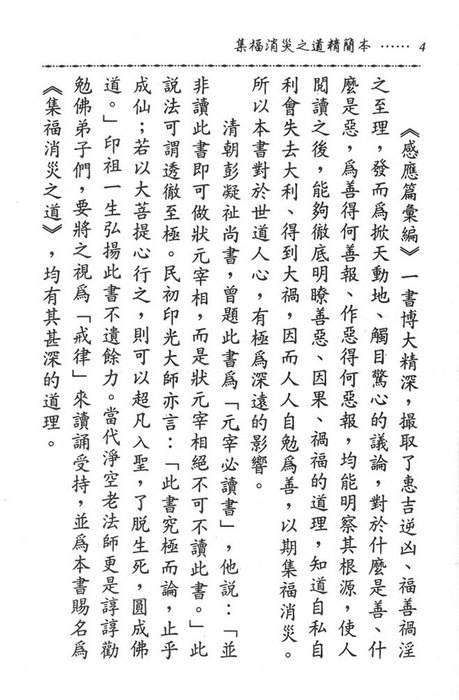 集福消災之道精簡本 …… 4
《感應篇彙編》一書博大精深，撮取了惠吉逆凶、福善禍淫
之至理，發而爲掀天動地、觸目驚心的議論，對於什麼是善、什
麼是惡，爲善得何善報、作惡得何惡報，均能明察其根源，使人
閱讀之後，能夠徹底明瞭善惡、因果、禍福的道理，知道自私自
利會失去大利、得到大禍，因而人人自勉爲善，以期集福消災。
所以本書對於世道人心，有極爲深遠的影響。
清朝彭凝祉尚書，曾題此書爲「元宰必讀書」，他說：「並
非讀此書即可做狀元宰相，而是狀元宰相絕不可不讀此書。」此
說法可謂透徹至極。民初印光大師亦言：「此書究極而論，止乎
成仙；若以大菩提心行之，則可以超凡入聖，了脫生死，圓成佛
道。」印祖一生弘揚此書不遺餘力。當代淨空老法師更是諄諄勸
勉佛弟子們，要將之視爲「戒律」來讀誦受持，並爲本書賜名爲
《集福消災之道》，均有其甚深的道理。